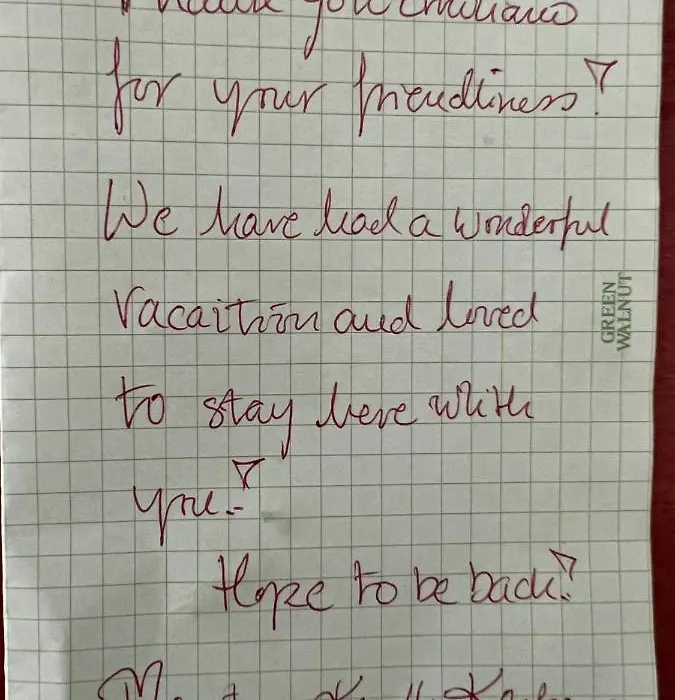 you Emiliano
for your friendliness!
We have had a wonderful
vacaition and loved
to stay here with
you!
Hope to be back!
GREEN
WALNUT